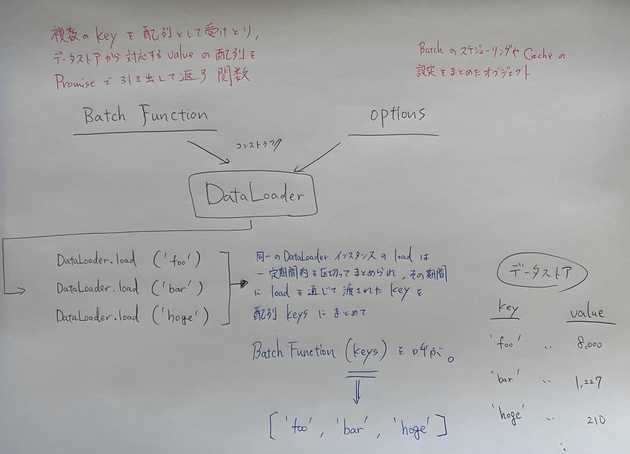 複数の key を 配列として受けとり,
データストアから対応する value の配列を
Promise で 引き出して返す 関数
Batchのスケジューリングや Cacheの
設定をまとめたオブジェクト
Batch Function
options
コンストラクタ
DataLoader
DataLoader.load ('foo')
DataLoader.load ('bar')
DataLoader.load ('hoge')
同一のDataLoader インスタンスの load は
一定期間内を区切ってまとめられ、その期間
に load を通じて渡された key を
配列 keys にまとめて
Batch Function (keys) を 呼ぶ。
['foo', 'bar', 'hoge']
データストア
key value
'foo' .. 8,000
'bar' .. 1,227
'hoge' .. 210
: